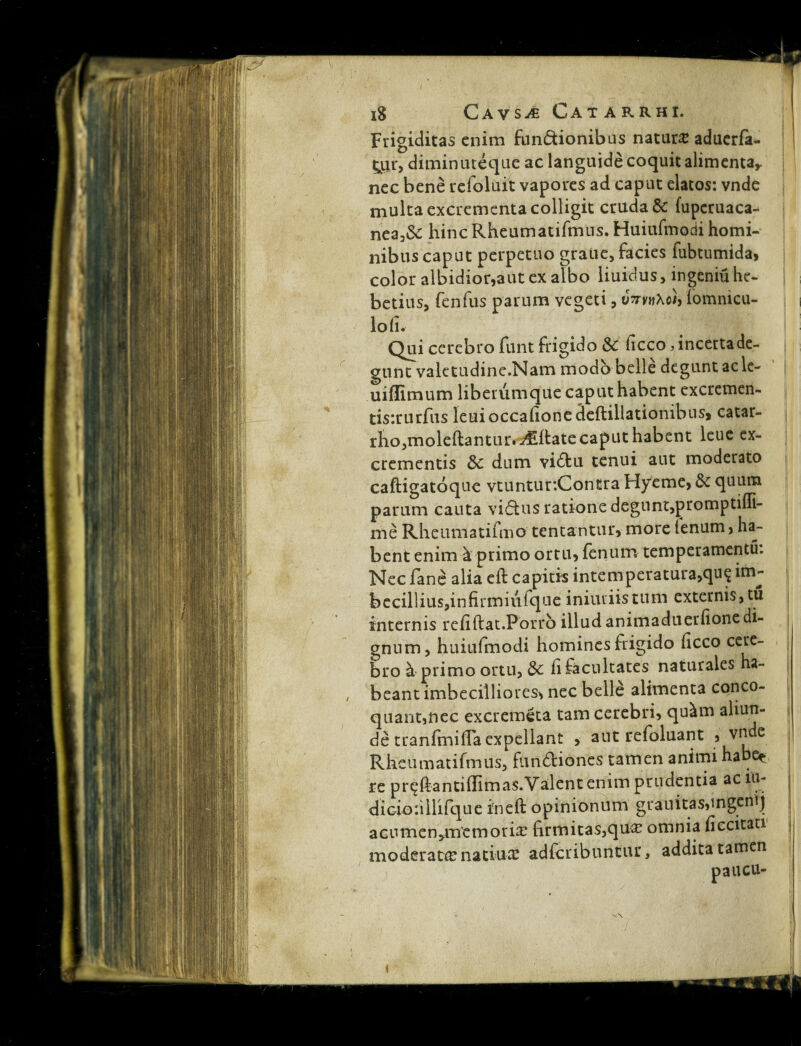 18 CAVSÆ CATARRHI.
Frigiditas enim functionibus naturæ aduerſa-
tur, diminutéque ac languidè coquit alimenta,
nec benè reſoluit vapores ad caput elatos: vnde
multa excrementa colligit cruda & ſuperuaca-
nea,& hinc Rheumatiſmus. Huiuſmodi homi-
nibus caput perpetuo graue, facies ſubtumida,
color albidior,aut ex albo liuidus, ingeniū he-
betius, ſenſus parum vegeti, ὑπνηλοὶ, ſomnicu-
loſi.
Qui cerebro ſunt frigido & ſicco, incerta de-
gunt valetudine.Nam modò bellè degunt ac le-
uiſſimum liberúmque caput habent excremen-
tis:rurſus leui occaſione deſtillationibus, catar-
rho,moleſtantur. Æſtate caput habent leue ex-
crementis & dum victu tenui aut moderato
caſtigatóque vtuntur:Contra Hyeme, & quum
parum cauta victus ratione degunt,promptiſſi-
mè Rheumatiſmo tentantur, more ſenum, ha-
bent enim à primo ortu, ſenum temperamentū:
Nec ſanè alia eſt capitis intemperatura,quę im-
becillius,infirmiúſque iniuriis tum externis, tū
internis reſiſtat.Porrò illud animaduerſione di-
gnum, huiuſmodi homines frigido ſicco cere-
bro à primo ortu, & ſi facultates naturales ha-
beant imbecilliores, nec bellè alimenta conco-
quant,nec excremēta tam cerebri, quàm aliun-
dè tranſmiſſa expellant, aut reſoluant, vnde
Rheumatiſmus, functiones tamen animi habe-
re pręſtantiſſimas.Valent enim prudentia ac iu-
dicio:illiſque ineſt opinionum grauitas,ingenij
acumen,memoriæ firmitas,quæ omnia ſiccitati
moderatæ natiuæ adſcribuntur, addita tamen
paucu-